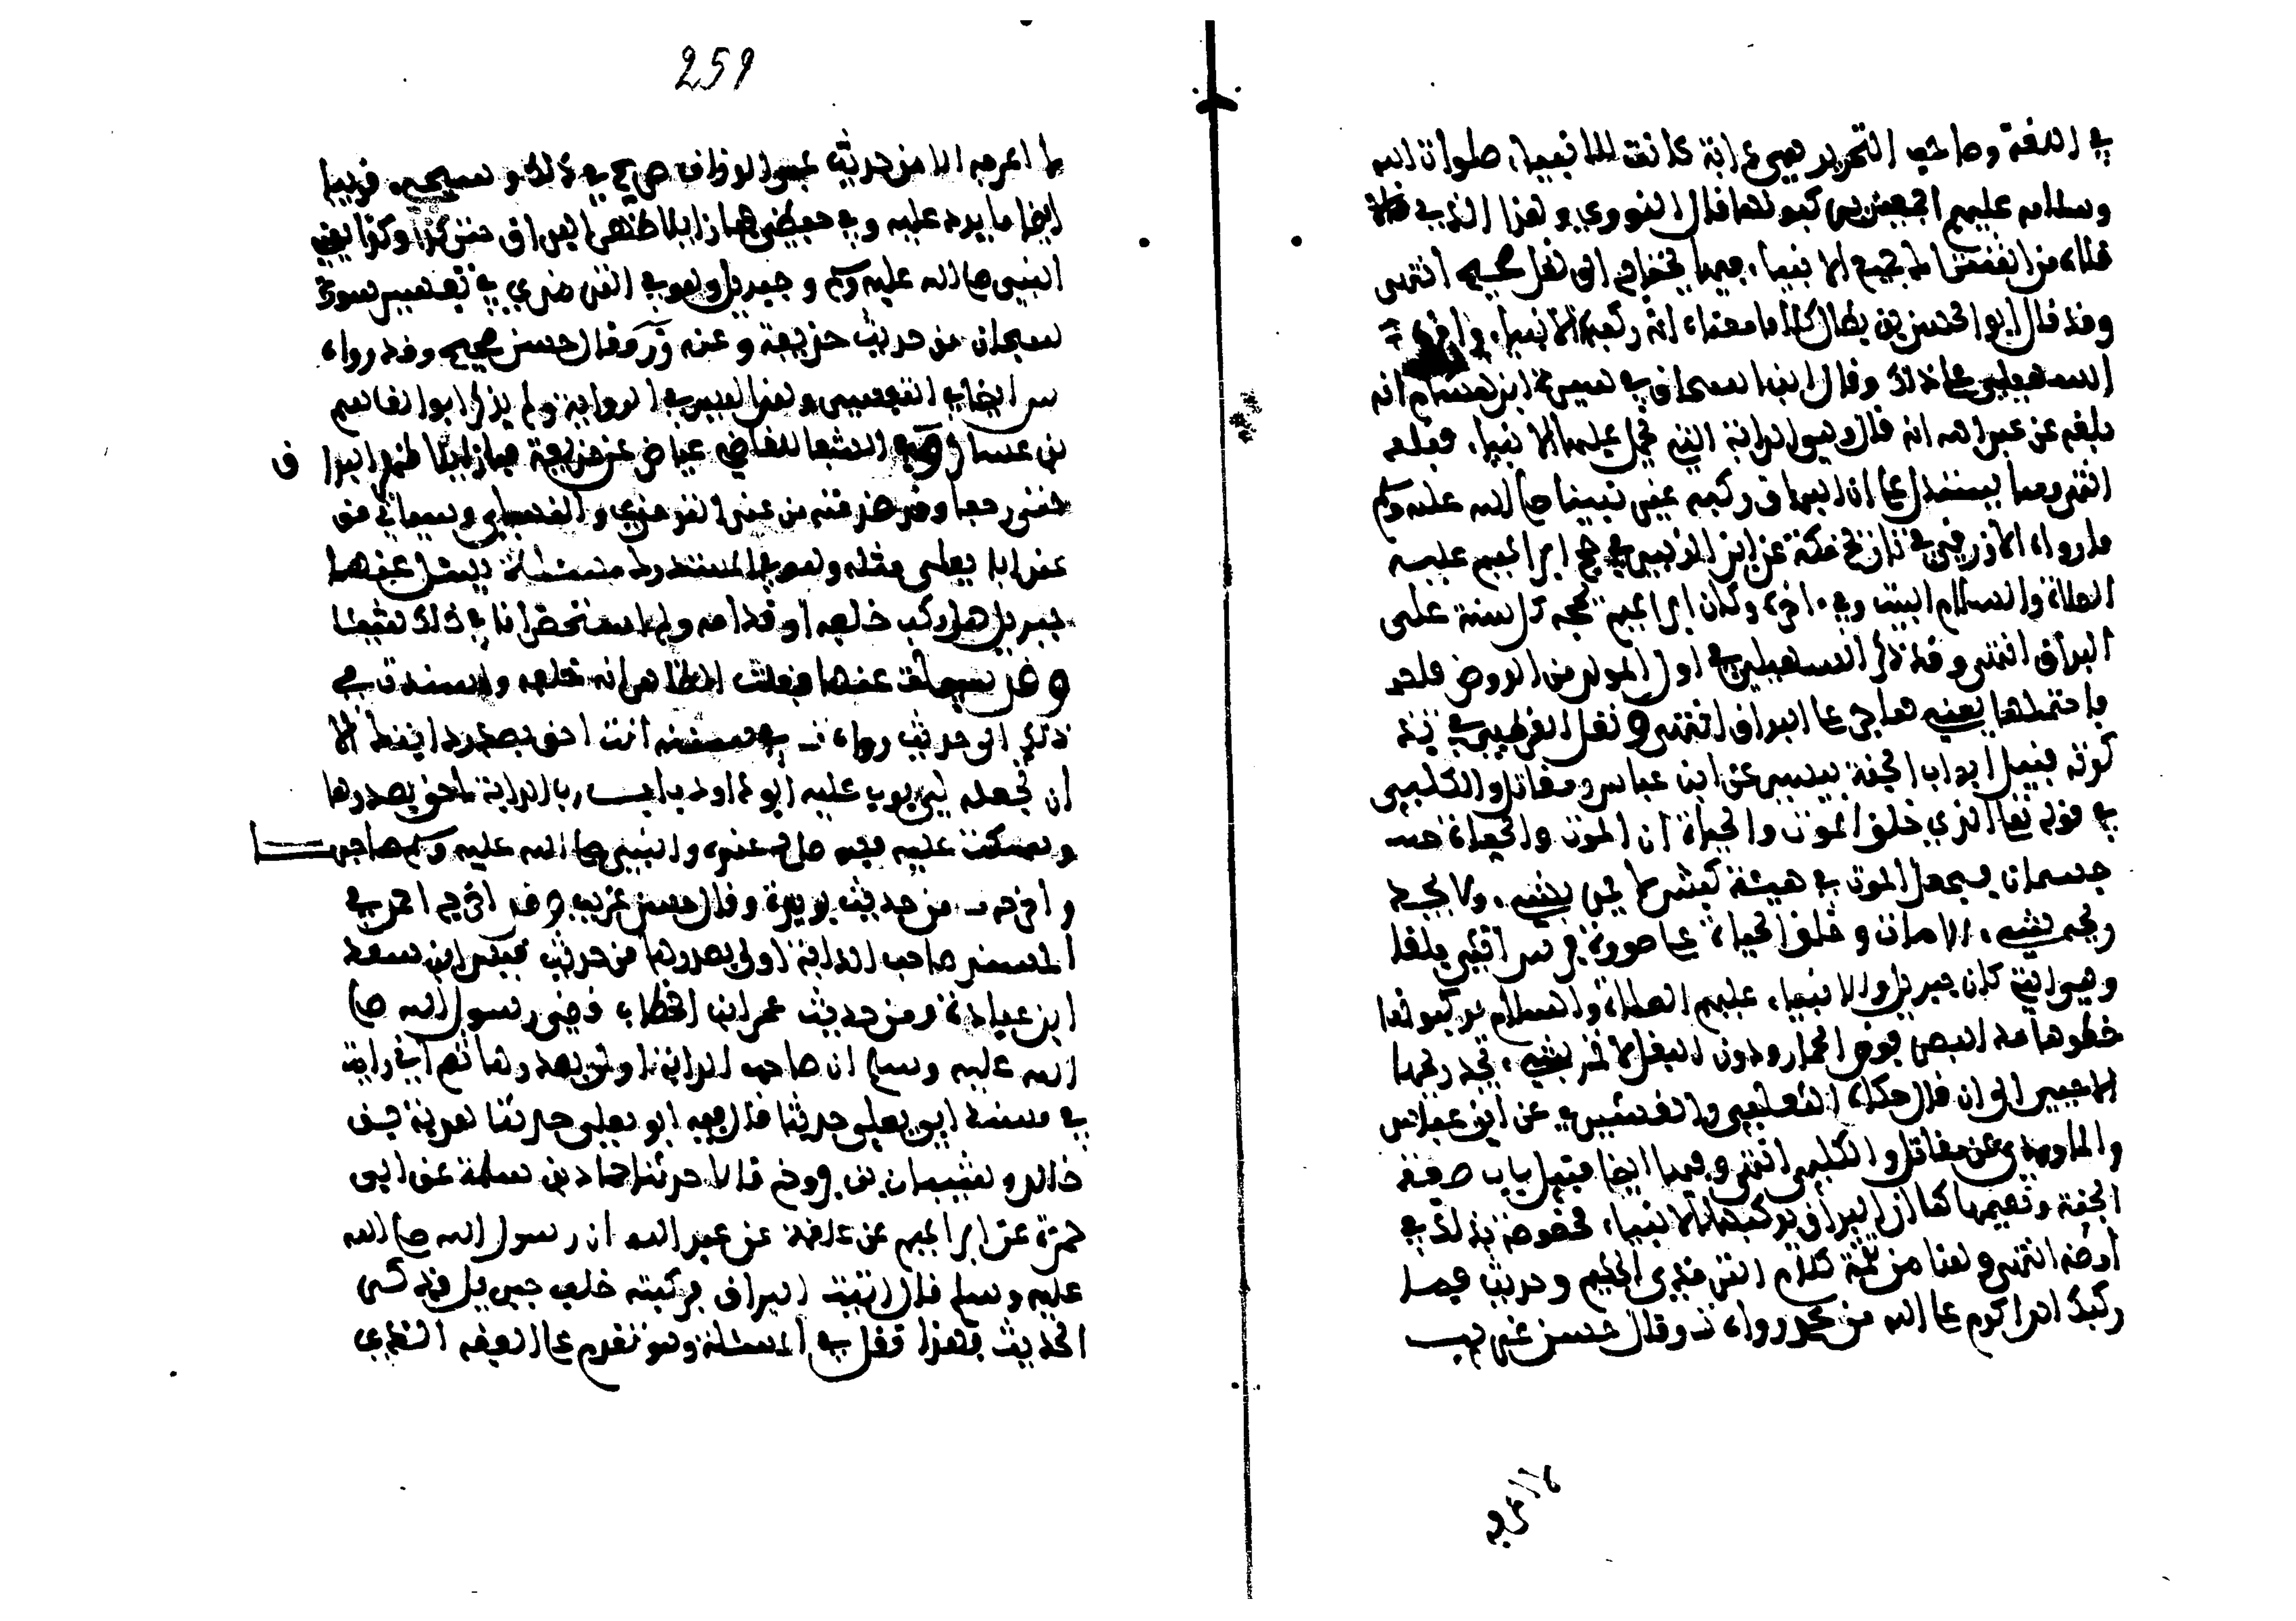 في اللغة وصاحب التحرير هي دابة كانت للانبياء صلوات الله
وسلامه عليهم اجمعين يركبونها قال النووي وهذا الذي قالاه
من اشتراك جميع الانبياء فيها يحتاج الى نقل صحيح انتهى
وقد قال ابو الحسن بن بطال كلاما معناه انه ركبه الانبياء
السهيلي على ذلك وقال ابن اسحاق في سيرة ابن هشام انه
بلغه عن عبد الله انه قال وهي الدابة التي تحمل عليها الانبياء قبله
انتهى ومما يستدل على ان البراق ركبه غير نبينا صلى الله عليه وسلم
ما رواه الازرقي في تاريخ مكة عن ابن الزبير في حج ابراهيم عليه
الصلاة والسلام البيت وفي اخره وكان ابراهيم يحجه كل سنة على
البراق انتهى وقد ذكر السهيلي في اول المولد من الروض
فاحتملها يعني هاجر على البراق انتهى ونقل القرطبي في تذ
كرته قبيل ابواب الجنة بيسير عن ابن عباس ومقاتل والكلبي
في قوله تعالى الذي خلق الموت والحياة ان الموت والحياة
جسمان فجعل الموت في هيئة كبش لا يمر بشيء ولا يجد
ريحه شيء الا مات وخلق الحياة على صورة فرس انثى بلقا
وهي التي كان جبريل والانبياء عليهم الصلاة والسلام يركبونها
خطوها مد البصر فوق الحمار ودون البغل لا تمر بشيء يجد ريحها
الا حيي الى ان قال حكاه الثعلبي والقشيري عن ابن عباس
والماوردي عن مقاتل والكلبي انتهى وفيها ايضا قبيل باب صفة
الجنة ونعيمها كما ان البراق يركبها الانبياء مخصوصة بذلك في
ارضه انتهى وهنا من تتمة كلام الترمذي الحكيم وحديث
ركبك احد اكرم على الله من محمد رواه ت وقال حسن غريب
259
لا اعرفه الا من حديث عبد الرزاق صريح في ذلك
ايضا ما يرد عليه وفي بعض فما زايلا ظهر البراق حتى كذا وكذا يعني
النبي صلى الله عليه وسلم وجبريل وهو في الترمذي في تفسير سورة
سبحان من حديث حذيفة وقال حسن صحيح وقد رواه
س ايضا في التفسير ولم يذكرها ابو القاسم
بن عساكر وفي الشفا للقاضي عياض عن حذيفة ما زايلا ظهر البراق
حتى رجعا
عند ابي يعلى مثله وهو في المستدرك مسئلة يسئل عنها
جبريل هل ركب خلفه او قدامه ولم استحضر انا في ذلك شيئا
وقد سئلت عنها فقلت الظاهر انه خلفه واستندت في
ذلك الى حديث رواه في انت احق بصدر دابتك الا
ان تجعله لي بوب عليه ابو داود باب رب الدابة احق بصدرها
وسكت عليه فهو صالح عنده والنبي صلى الله عليه وسلم صاحبها
واخرجه من حديث بريدة وقال حسن غريب وقد اخرج احمد في
المسند صاحب الدابة اولى بصدرها من حديث قيس ابن سعد
ابن عبادة ومن حديث عمر ابن الخطاب قضى رسول الله صلى
الله عليه وسلم ان صاحب الدابة اولى بصدرها ثم اني رايت
في مسند ابي يعلى حديثا قال فيه ابو يعلى حدثنا هدبة بن
خالد وشيبان بن فروخ قالا حدثنا حماد بن سلمة عن ابي
حمزة عن ابراهيم عن علقمة عن عبد الله ان رسول الله صلى الله
عليه وسلم قال اتيت البراق فركبته خلف جبريل فذكر
الحديث فهذا نقل في المسئلة وهو تقدم على الفقه النظري